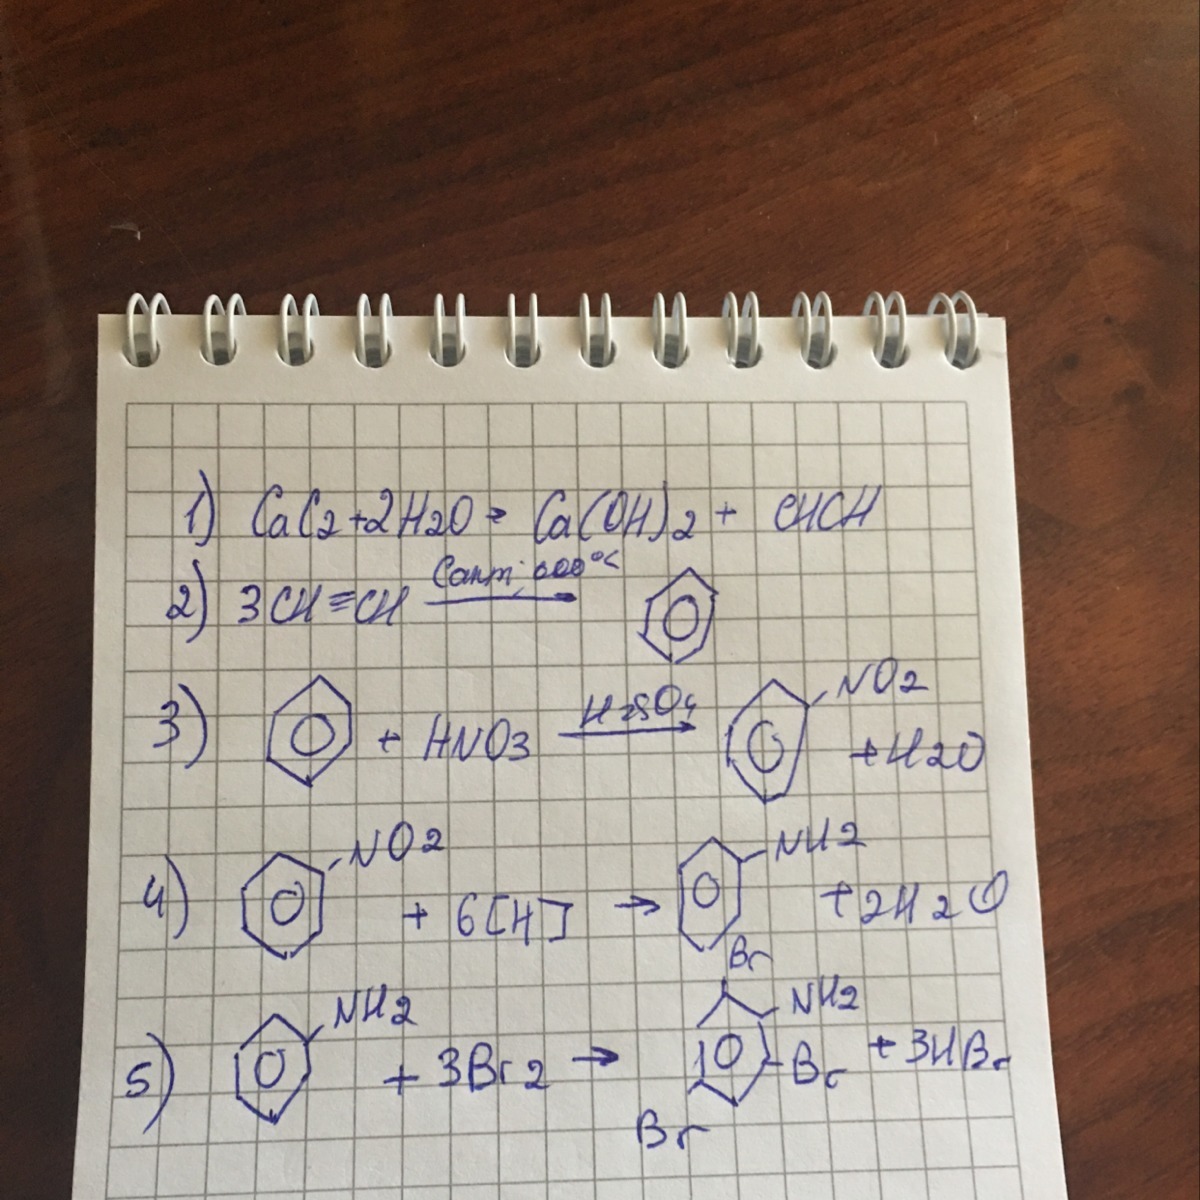 1) CaC2 + 2H2O → Ca(OH)2 + CHCH
2) 3CH≡CH →
3) + HNO3 H2SO4 → NO2 + H2O
4) NO2 + 6[H] → NH2 + 2H2O
5) NH2 + 3Br2 → Br NH2 Br Br + 3HBr